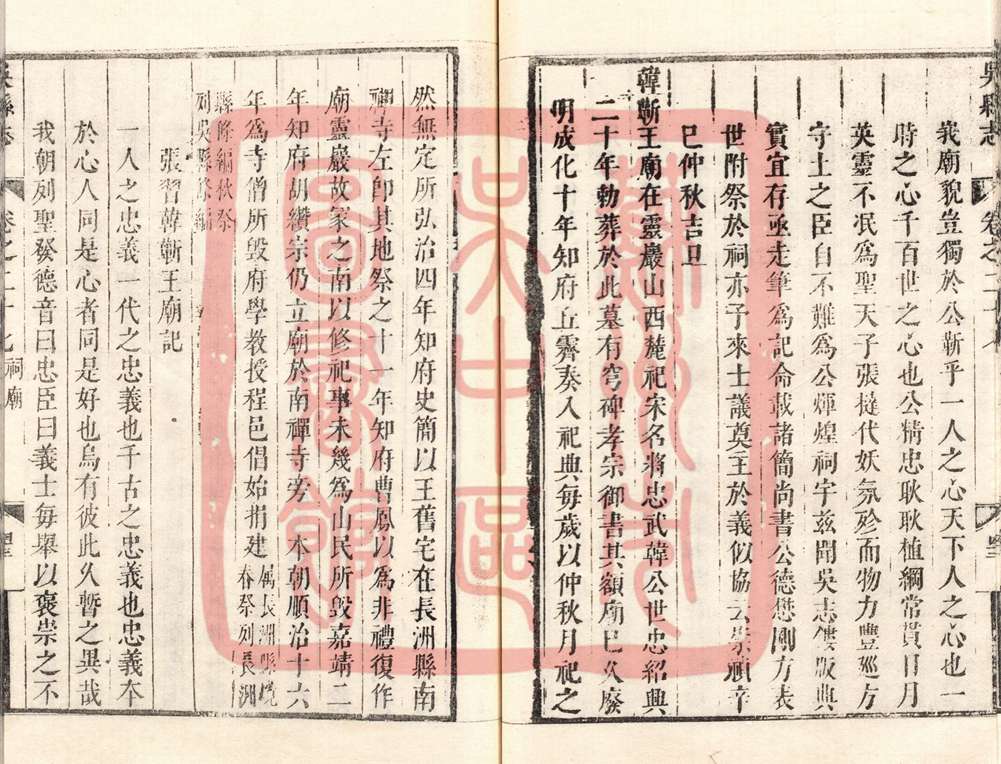 吳縣志
卷之二十七
我廟貌豈獨於公靳乎一人之心天下人之心也一
時之心千百世之心也公精忠耿耿植綱常貫日月
英靈不泯為聖天子張撻代妖氛殄而物力豐廵方
守土之臣自不難為公煇煌祠宇兹聞吳志僂版典
實宜存亟走筆為記命載諸簡尚書公德懋剛方表
世附祭於祠亦子來士議奠主於義似協云崇禎辛
巳仲秋吉旦
韓蘄王廟在靈巖山西麓祀宋名將忠武韓公世忠紹興
二十年勅葬於此墓有穹碑孝宗御書其額廟已久廢
明成化十年知府丘霽奏入祀典每歲以仲秋月祀之
然無定所弘治四年知府史簡以王舊宅在長洲縣南
禪寺左即其地祭之十一年知府曹鳳以為非禮復作
廟靈巖故冢之南以修祀事未幾為山民所毀嘉靖二
年知府胡纘宗仍立廟於南禪寺旁 本朝順治十六
年為寺僧所毀府學教授程邑倡始捐建
屬長洲縣境
春祭列長洲
縣條編秋祭
列吳縣條編
張習韓蘄王廟記
一人之忠義一代之忠義也千古之忠義也忠義本
於心人同是心者同是好也烏有彼此久暫之異哉
我朝列聖發德音曰忠臣曰義士每舉以褒崇之不
吳縣志
卷之二十七
祠廟